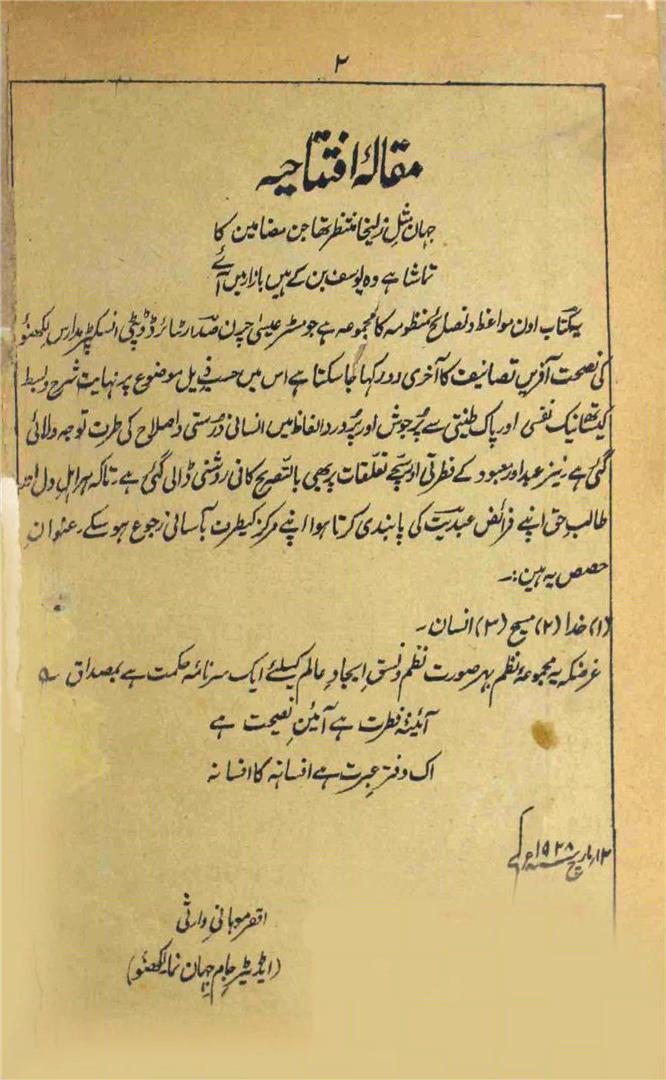 ۲
مقالۂ افتتاحیہ
جہان مثلِ زلیخا منتظر تھا جن مضامین کا
تماشا ہے وہ یوسف بن کے ہیں بازار میں آئے
یہ کتاب اون مواعظ و نصائح منظومہ کا مجموعہ ہے جو مسٹر عیسیٰ چرن صداؔ رٹائرڈ ڈپٹی انسپکٹر مدارس لکھنؤ
کی نصحت آفریں تصانیف کا آخری دور کہا جا سکتا ہے اس میں حسبِ ذیل موضوع پر نہایت شرح و بسط
کیساتھ نیک نفسی اور پاک طینتی سے پُر جوش اور پُر درد الفاظ میں انسانی درستی و اصلاح کی طرف توجہ دلائی
گئی ہے۔ نیز عبد اور معبود کے فطرتی اور سچے تعلّقات پر بھی بالتّصریح کافی روشنی ڈالی گئی ہے۔ تاکہ ہر اہلِ دل اور
طالبِ حق اپنے فرائض عبدیت کی پابندی کرتا ہوا اپنے مرکز کیطرف بآسانی رجوع ہو سکے۔ عنوانِ
حصص یہ ہین:۔
(۱) خدا (۲) مسیح (۳) انسان۔
غرضکہ یہ مجموعۂ نظم بہر صورت نظم و نسقِ ایجادِ عالم کیلئے ایک سرنامۂ حکمت ہے بمصداق ؎
آئینۂ فطرت ہے آئینِ نصیحت ہے
اک دفترِ عبرت ہے افسانہ کا افسانہ
۱۲ مارچ ۱۹۲۸ء
افقر موہانی وارثی
(ایڈیٹر جام جہان نما لکھنؤ)